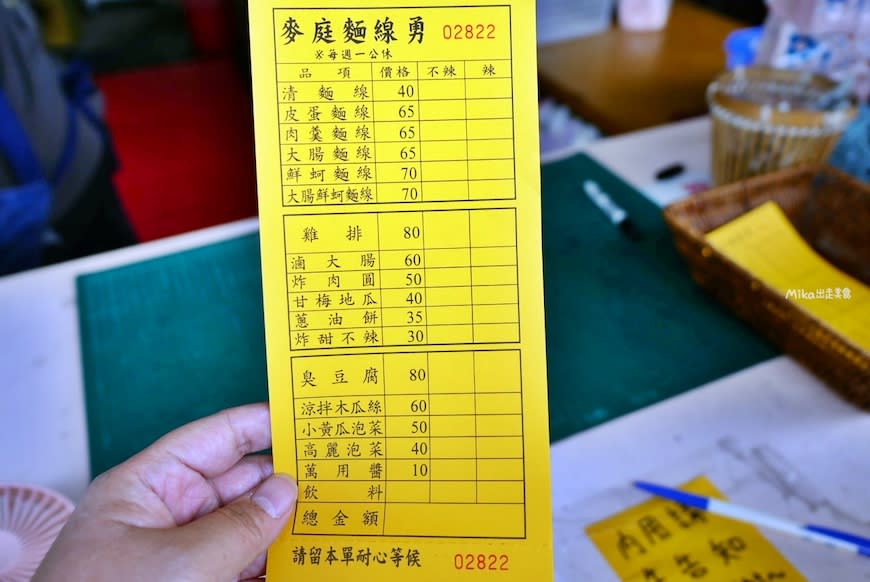 麥庭麵線勇 02822
※每週一公休
品項 價格 不辣 辣
清麵線 40
皮蛋麵線 65
肉羹麵線 65
大腸麵線 65
鮮蚵麵線 70
大腸鮮蚵麵線 70
雞排 80
滷大腸 60
炸肉圓 50
甘梅地瓜 40
蔥油餅 35
炸甜不辣 30
臭豆腐 80
涼拌木瓜絲 60
小黃瓜泡菜 50
高麗泡菜 40
萬用醬 10
飲料
總金額
請留本單耐心等候 02822
Mika出走美食
內用請
告知